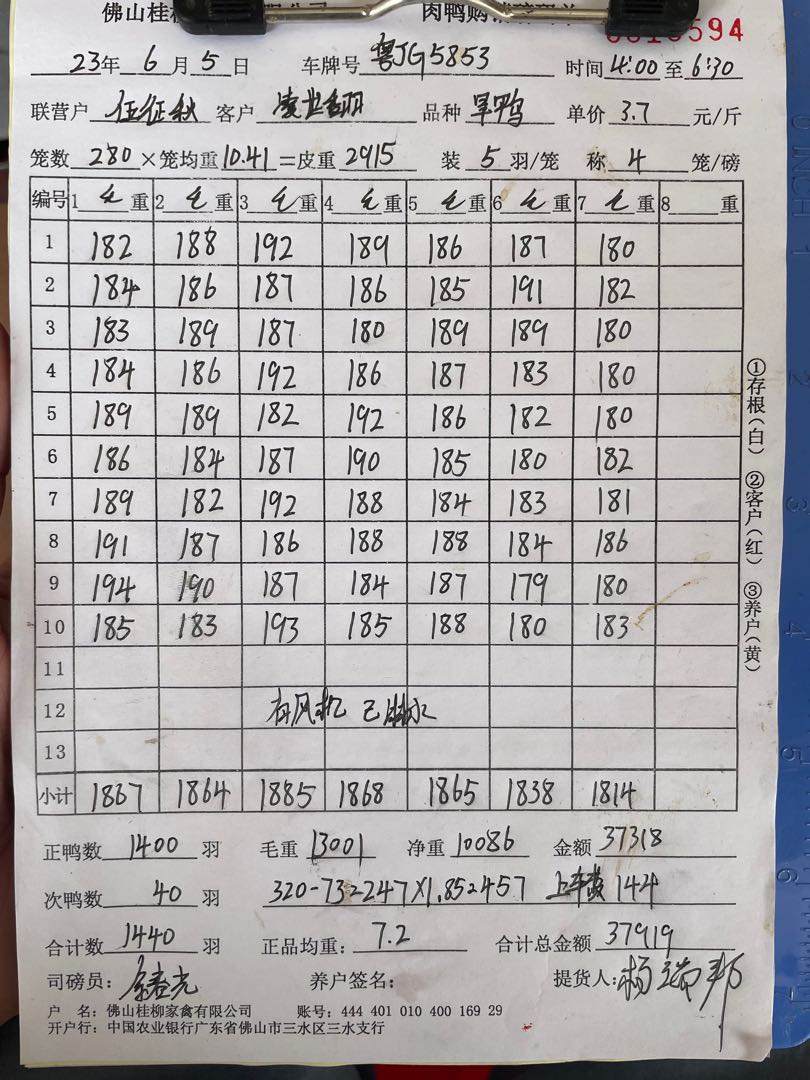 佛山桂柳 限公司 肉鸭购销
594
23年6月5日 车牌号 粤JG5853 时间 4:00 至 6:30
联营户 伍征秋 客户 品种 单价 3.7 元/斤
笼数 280 ×笼均重 10.41 =皮重 2915 装 5 羽/笼 称 4 笼/磅
编号 1 毛 重 2 毛 重 3 毛 重 4 毛 重 5 毛 重 6 毛 重 7 毛 重 8 重
1 182 188 192 189 186 187 180
2 184 186 187 186 185 191 182
3 183 189 187 180 189 189 180
4 184 186 192 186 187 183 180
5 189 189 182 192 186 182 180
6 186 184 187 190 185 180 182
7 189 182 192 188 184 183 181
8 191 187 186 188 188 184 186
9 194 190 187 184 187 179 180
10 185 183 193 185 188 180 183
11
12 有风机 已 水
13
小计 1867 1864 1885 1868 1865 1838 1814
正鸭数 1400 羽 毛重 13001 净重 10086 金额 37318
次鸭数 40 羽 320-73=247×1.85=457 上车费 144
合计数 1440 羽 正品均重: 7.2 合计总金额 37919
司磅员: 养户签名: 提货人: 杨瑞邦
户 名: 佛山桂柳家禽有限公司 账号: 444 401 010 400 169 29
开户行: 中国农业银行广东省佛山市三水区三水支行
①存根(白) ②客户(红) ③养户(黄)